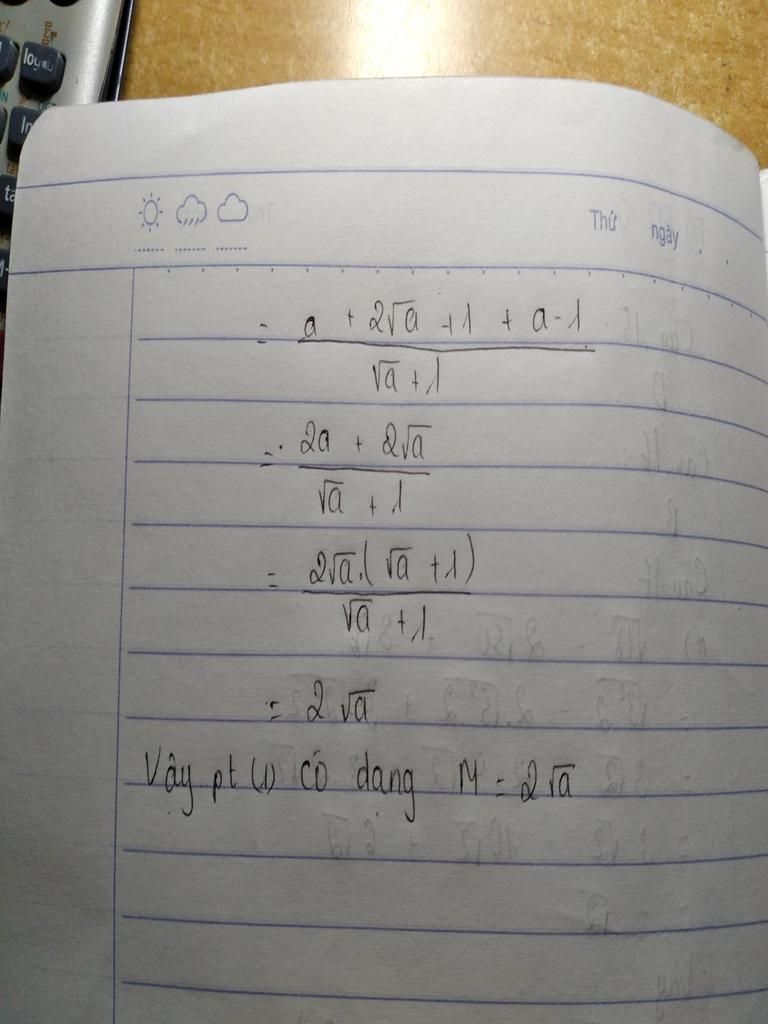 log
ln
Thứ ngày
= (a + 2√a + 1 + a - 1) / (√a + 1)
= (2a + 2√a) / (√a + 1)
= (2√a.(√a + 1)) / (√a + 1)
= 2√a
Vậy pt (1) có dạng M = 2√a